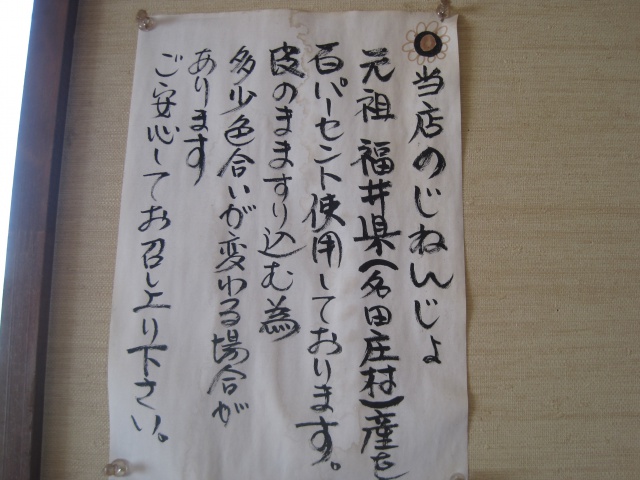 当店のじねんじょ
元祖 福井県(名田庄村)産を
百パーセント使用しております。
皮のまますり込む為
多少色合いが変わる場合が
あります
ご安心してお召し上り下さい。